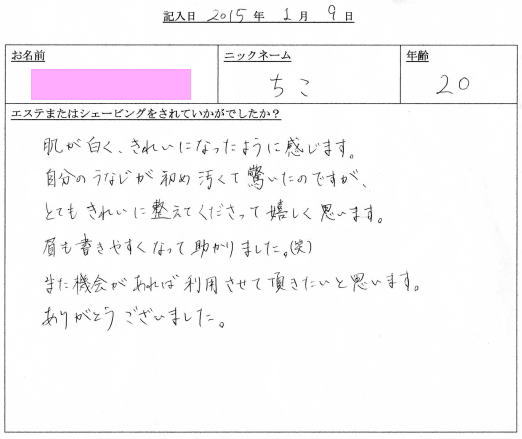 記入日 2015年 1月 9日
お名前
ニックネーム
ちこ
年齢
20
エステまたはシェービングをされていかがでしたか?
肌が白く、きれいになったように感じます。
自分のうなじが初め汚くて驚いたのですが、
とてもきれいに整えてくださって嬉しく思います。
眉も書きやすくなって助かりました。(笑)
また機会があれば利用させて頂きたいと思います。
ありがとうございました。